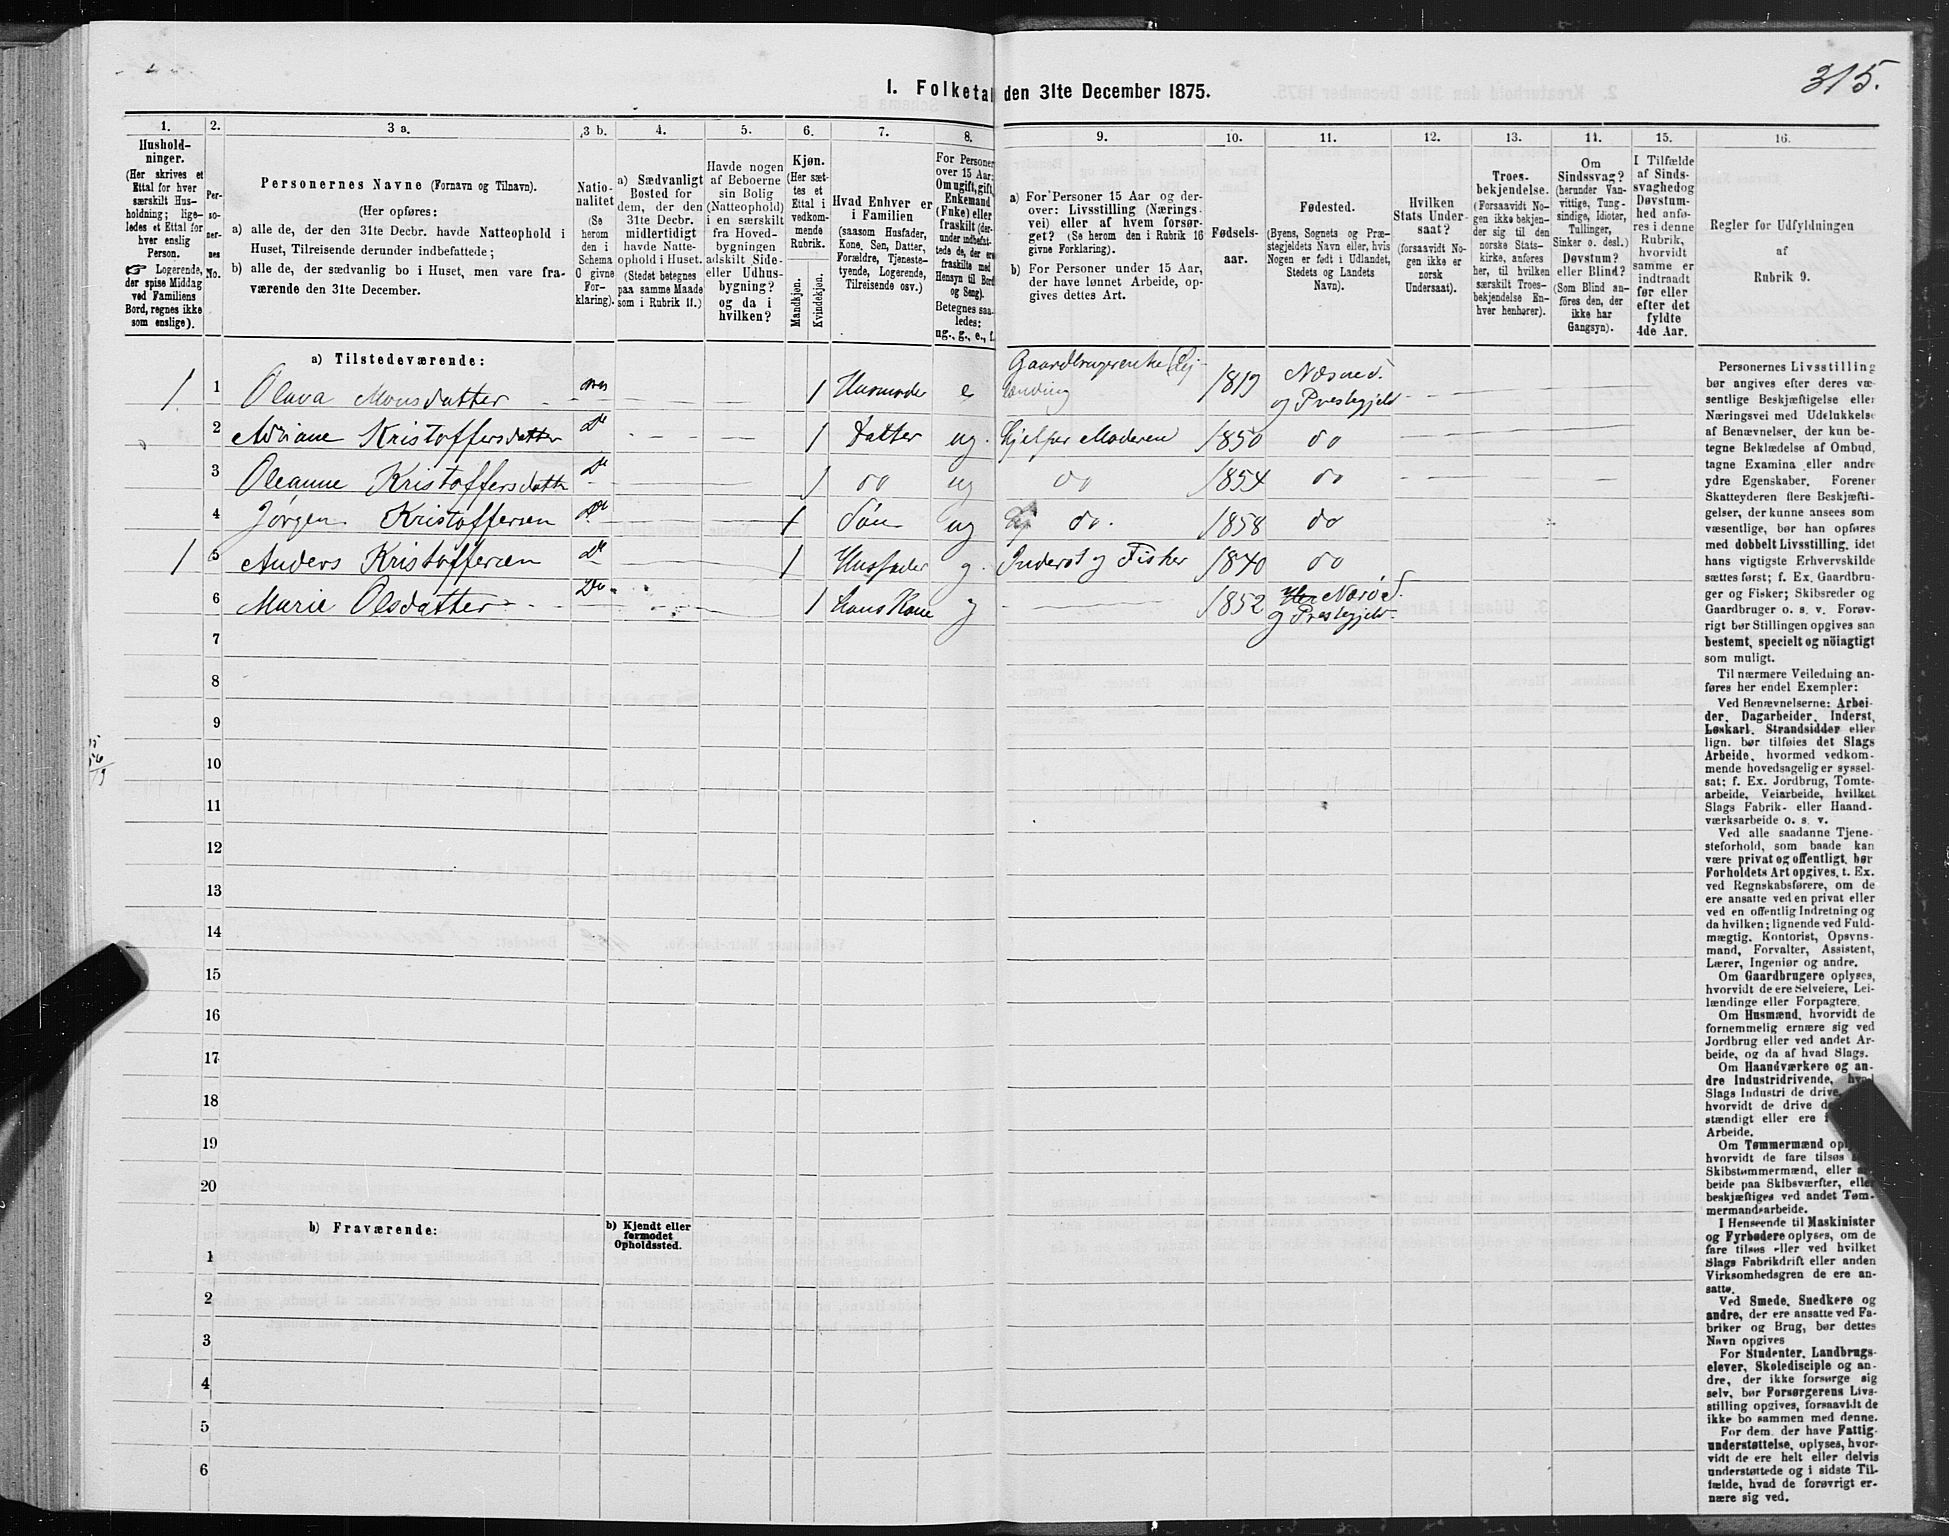 315.
I. Folketal den 31te December 1875.
1.
Hushold-
ninger.
(Her skrives et
Ettal for hver
særskilt Hus-
holdning; lige-
ledes et Ettal for
hver enslig
Person.
☞ Logerende,
der spise Middag
ved Familiens
Bord, regnes ikke
som enslige).
2.
Per-
so-
ner-
nes
No.
3 a.
Personernes Navne (Fornavn og Tilnavn).
(Her opføres:
a) alle de, der den 31te Decbr. havde Natteophold i
Huset, Tilreisende derunder indbefattede;
b) alle de, der sædvanlig bo i Huset, men vare fra-
værende den 31te December.
3 b.
Natio-
nalitet
(Se
herom
den i
Schema
O givne
For-
klaring).
4.
a) Sædvanligt
Bosted for
dem, der den
31te Decbr.
midlertidigt
havde Natte-
ophold i Huset.
(Stedet betegnes
paa samme Maade
som i Rubrik 11.)
5.
Havde nogen
af Beboerne
sin Bolig
(Natteophold)
i en særskilt
fra Hoved-
bygningen
adskilt Side-
eller Udhus-
bygning?
og da i
hvilken?
6.
Kjøn.
(Her sæt-
tes et
Ettal i
vedkom-
mende
Rubrik.
Mandkjøn.
Kvindekjøn.
7.
Hvad Enhver er
i Familien
(saasom Husfader,
Kone, Søn, Datter,
Forældre, Tjeneste-
tyende, Logerende,
Tilreisende osv.)
8.
For Personer
over 15 Aar:
Om ugift, gift,
Enkemand
(Enke) eller
fraskilt (der-
under indbefat-
tede de, der ere
fraskilte med
Hensyn til Bord
og Seng).
Betegnes saa-
ledes:
ug., g., e., f.
9.
a) For Personer 15 Aar og der-
over: Livsstilling (Nærings-
vei) eller af hvem forsør-
get? (Se herom den i Rubrik 16
givne Forklaring).
b) For Personer under 15 Aar,
der have lønnet Arbeide, op-
gives dettes Art.
10.
Fødsels-
aar.
11.
Fødested.
(Byens, Sognets og Præ-
stegjeldets Navn eller, hvis
Nogen er født i Udlandet,
Stedets og Landets
Navn).
12.
Hvilken
Stats Under-
saat?
(forsaavidt No-
gen ikke er
norsk
Undersaat).
13.
Troes-
bekjendelse.
(Forsaavidt No-
gen ikke bekjen-
der sig til den
norske Stats-
kirke, anføres
her, til hvilken
særskilt Troes-
bekjendelse En-
hver henhører).
14.
Om
Sindssvag?
(herunder Van-
vittige, Tung-
sindige, Idioter,
Tullinger,
Sinker o. desl.)
Døvstum?
eller Blind?
(Som Blind an-
føres den, der
ikke har
Gangsyn).
15.
I Tilfælde
af Sinds-
svaghed og
Døvstum-
hed anfø-
res i denne
Rubrik,
hvorvidt
samme er
indtraadt
før eller
efter det
fyldte
4de Aar.
16.
Regler for Udfyldningen
af
Rubrik 9.
a) Tilstedeværende:
1 1 Olava Monsdatter nor 1 Husmoder e Gaardbrugerenke (Lej- 1819 Næsne S.
lænding og Prestegjeld
2 Adriane Kristoffersdatter Do 1 Datter ug. hjelper Moderen 1850 do
3 Oleanne Kristoffersdatter Do 1 do ug do 1854 do
4 Jørgen Kristoffersen Do 1 Søn ug do. 1858 do
1 5 Anders Kristoffersen Do 1 Husfader g. Inderst og Fisker 1840 do
6 Marie Olsdatter Do 1 Hans Kone g 1852 Nærø S.
og Prestegjeld.
7
8
9
10
11
12
13
14
15
16
17
18
19
20
b) Fraværende:
b) Kjendt eller
formodet
Opholdssted.
1
2
3
4
5
6
Personernes Livsstilling
bør angives efter deres væ-
sentlige Beskjæftigelse eller
Næringsvei med Udelukkelse
af Benævnelser, der kun be-
tegne Beklædelse af Ombud,
tagne Examina eller andre
ydre Egenskaber. Forener
Skatteyderen flere Beskjæfti-
gelser, der kunne ansees som
væsentlige, bør han opføres
med dobbelt Livsstilling, idet
hans vigtigste Erhvervskilde
sættes først; f. Ex. Gaardbru-
ger og Fisker; Skibsreder og
Gaardbruger o. s. v. Forøv-
rigt bør Stillingen opgives saa
bestemt, specielt og nöiagtigt
som muligt.
Til nærmere Veiledning an-
føres her endel Exempler:
Ved Benævnelserne: Arbei-
der, Dagarbeider, Inderst,
Løskarl, Strandsidder eller
lign. bør tilføies det Slags
Arbeide, hvormed vedkom-
mende hovedsagelig er syssel-
sat; f. Ex. Jordbrug, Tomte-
arbeide, Veiarbeide, hvilket
Slags Fabrik- eller Haand-
værksarbeide o. s. v.
Ved alle saadanne Tjene-
steforhold, som baade kan
være privat og offentligt, bør
Forholdets Art opgives, t. Ex.
ved Regnskabsførere, om de
ere ansatte ved en privat eller
ved en offentlig Indretning og
da hvilken; lignende ved Fuld-
mægtig, Kontorist, Opsyns-
mand, Forvalter, Assistent,
Lærer, Ingeniør og andre.
Om Gaardbrugere oplyses,
hvorvidt de ere Selveiere, Lei-
lændinge eller Forpagtere.
Om Husmænd, hvorvidt de
fornemmelig ernære sig ved
Jordbrug eller ved andet Ar-
beide, og da af hvad Slags.
Om Haandværkere og an-
dre Industridrivende, hvad
Slags Industri de drive,
hvorvidt de drive
stændigt eller ere
Arbeide.
Om Tømmermænd
hvorvidt de fare tilsøs
Skibstømmermænd, eller
beide paa Skibsværfter, eller
beskjæftiges ved andet Tøm-
mermandsarbeide.
I Henseende til Maskinister
og Fyrbødere oplyses, om de
fare tilsøs eller ved hvilket
Slags Fabrikdrift eller anden
Virksomhedsgren de ere an-
satte.
Ved Smede, Snedkere og
andre, der ere ansatte ved Fa-
briker og Brug, bør dettes
Navn opgives
For Studenter, Landbrugs-
elever, Skoledisciple og an-
dre, der ikke forsørge sig
selv, bør Forsørgerens Livs-
stilling opgives, forsaavidt de
ikke bo sammen med denne.
For dem, der have Fattig-
understøttelse, oplyses, hvor-
vidt de ere helt eller delvis
understøttede og i sidste Til-
fælde, hvad de forøvrigt er-
nære sig ved.